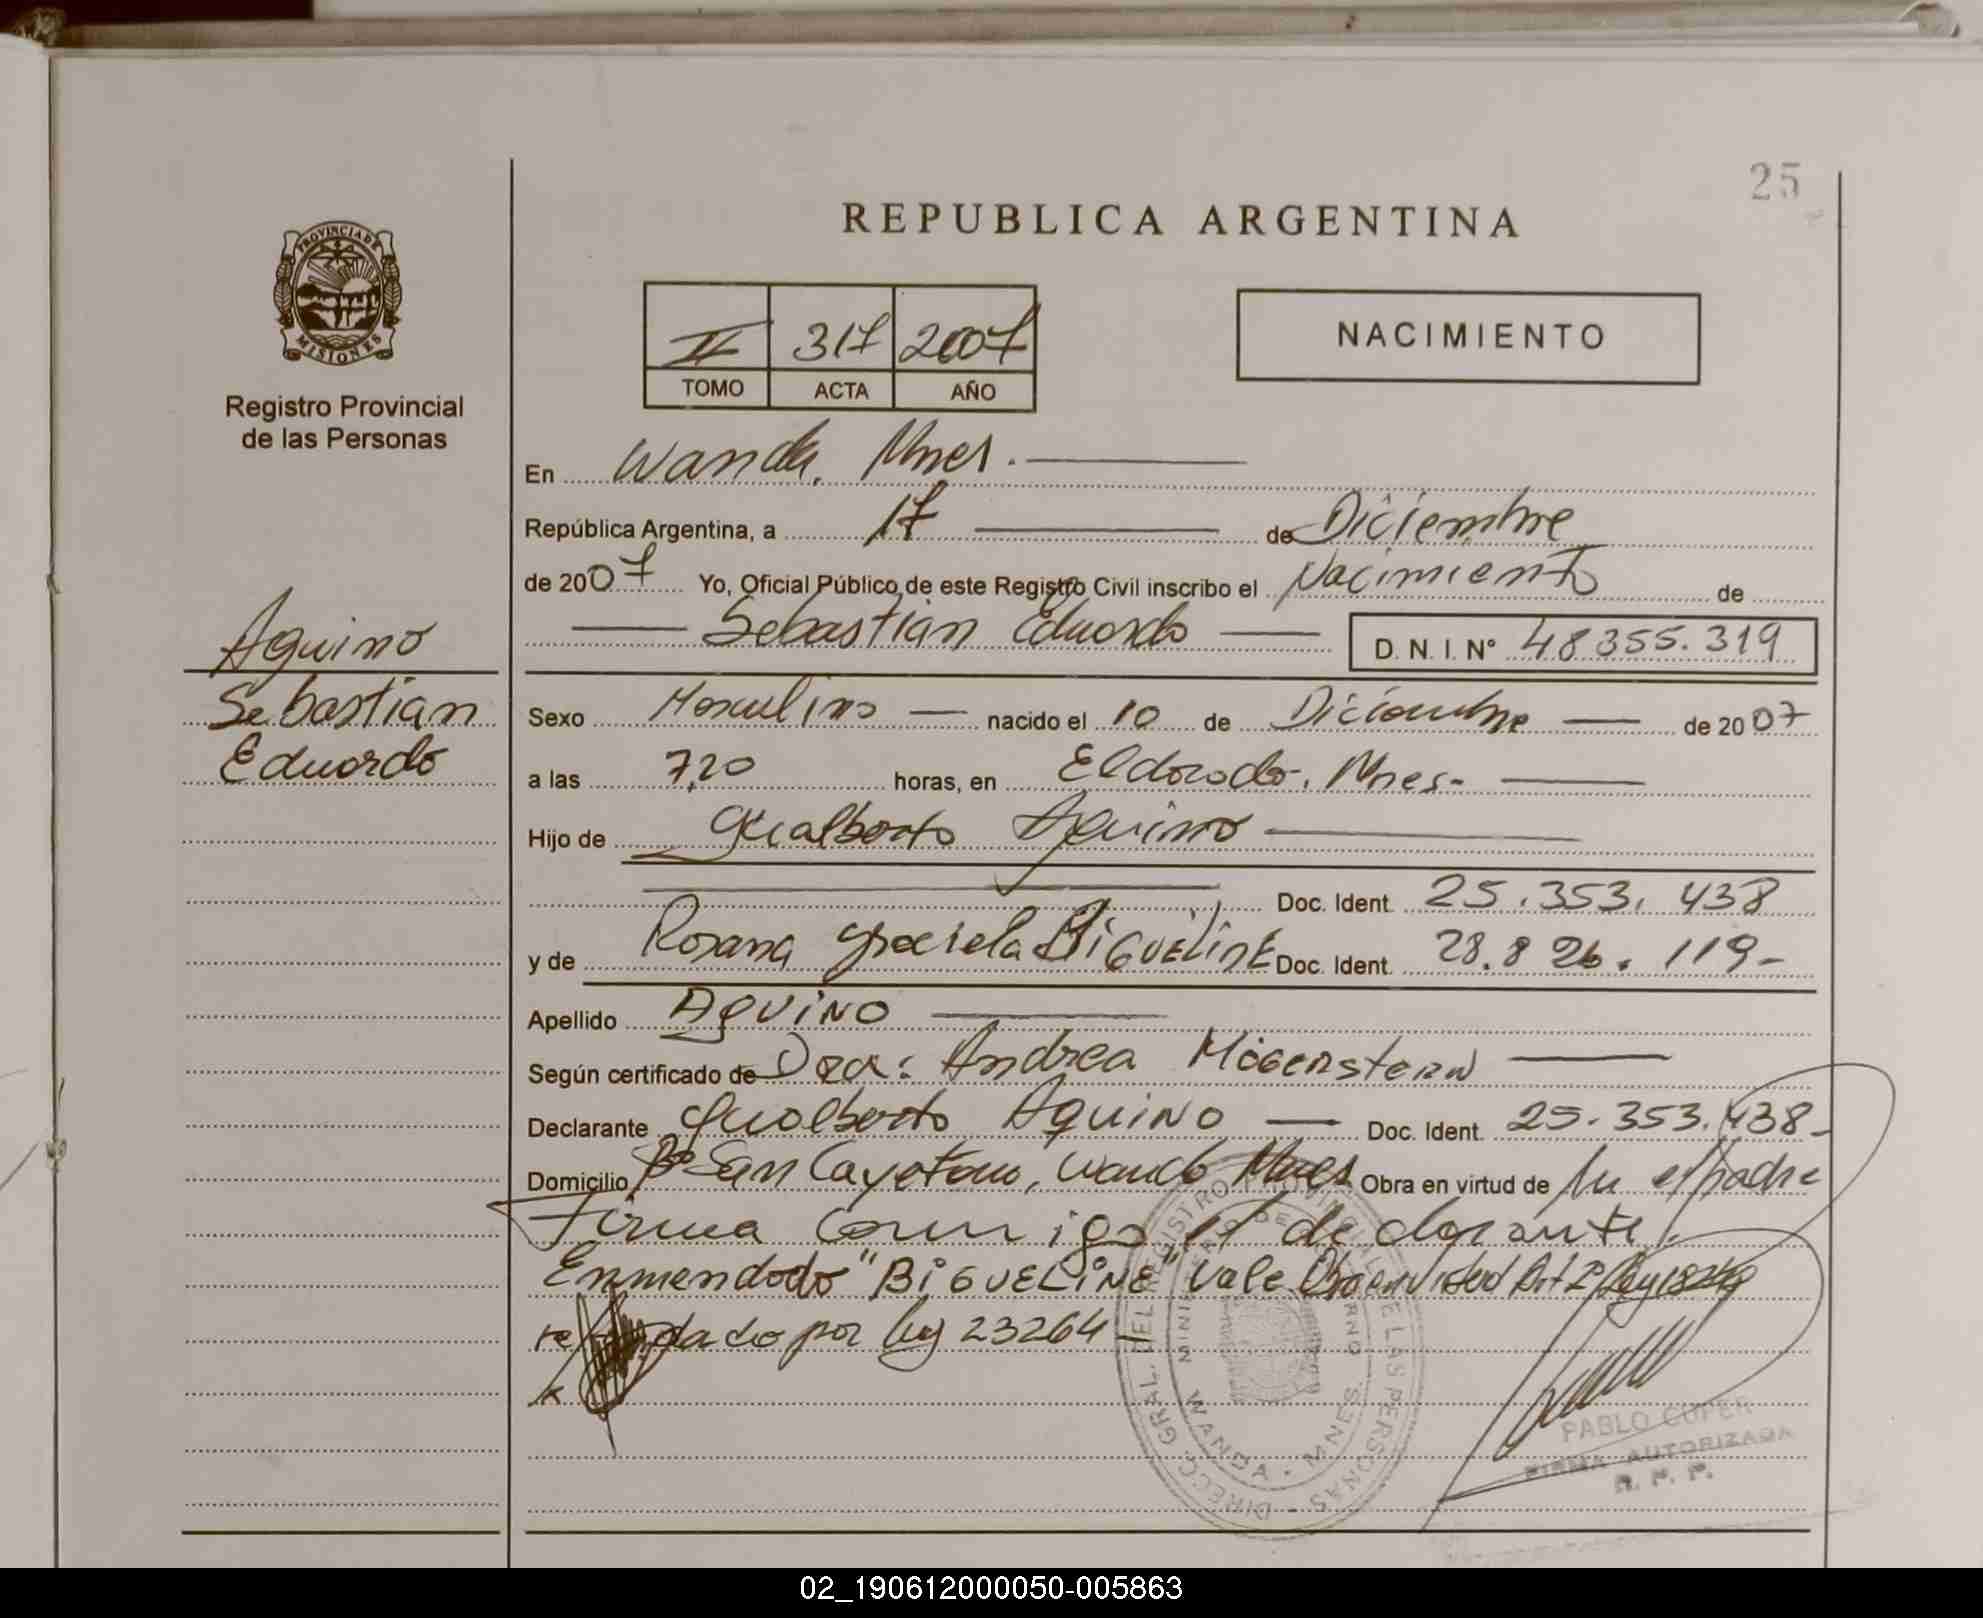 25
REPUBLICA ARGENTINA
PROVINCIA DE MISIONES
Registro Provincial
de las Personas
II 317 2007
TOMO ACTA AÑO
NACIMIENTO
En Wanda, Mnes.
República Argentina, a 17 de Diciembre
de 2007 Yo, Oficial Público de este Registro Civil inscribo el Nacimiento de
Sebastian Eduardo D. N. I. N° 48355.319
Aquino
Sebastian
Eduardo
Sexo Masculino nacido el 10 de Diciembre de 2007
a las 7,20 horas, en Eldorado, Mnes.
Hijo de Gualberto Aquino
Doc. Ident. 25.353.438
y de Rosana Graciela BIGUELINE Doc. Ident. 28.826.119-
Apellido AQUINO
Según certificado de Dra: Andrea Mogenstern
Declarante Gualberto AQUINO Doc. Ident. 25.353.438-
Domicilio Bº San Cayetano, Wanda Mnes Obra en virtud de ser el padre
Firma conmigo el declarante.
Enmendado "BIGUELINE" Vale Obra en virtud Art 2º Ley 18248
por ley 23264-
DIRECC. GRAL. DEL REGISTRO PROVINCIAL DE LAS PERSONAS
MINISTERIO DE GOBIERNO
WANDA - MNES.
PABLO CUPER
FIRMA AUTORIZADA
R. P. P.
02_190612000050-005863